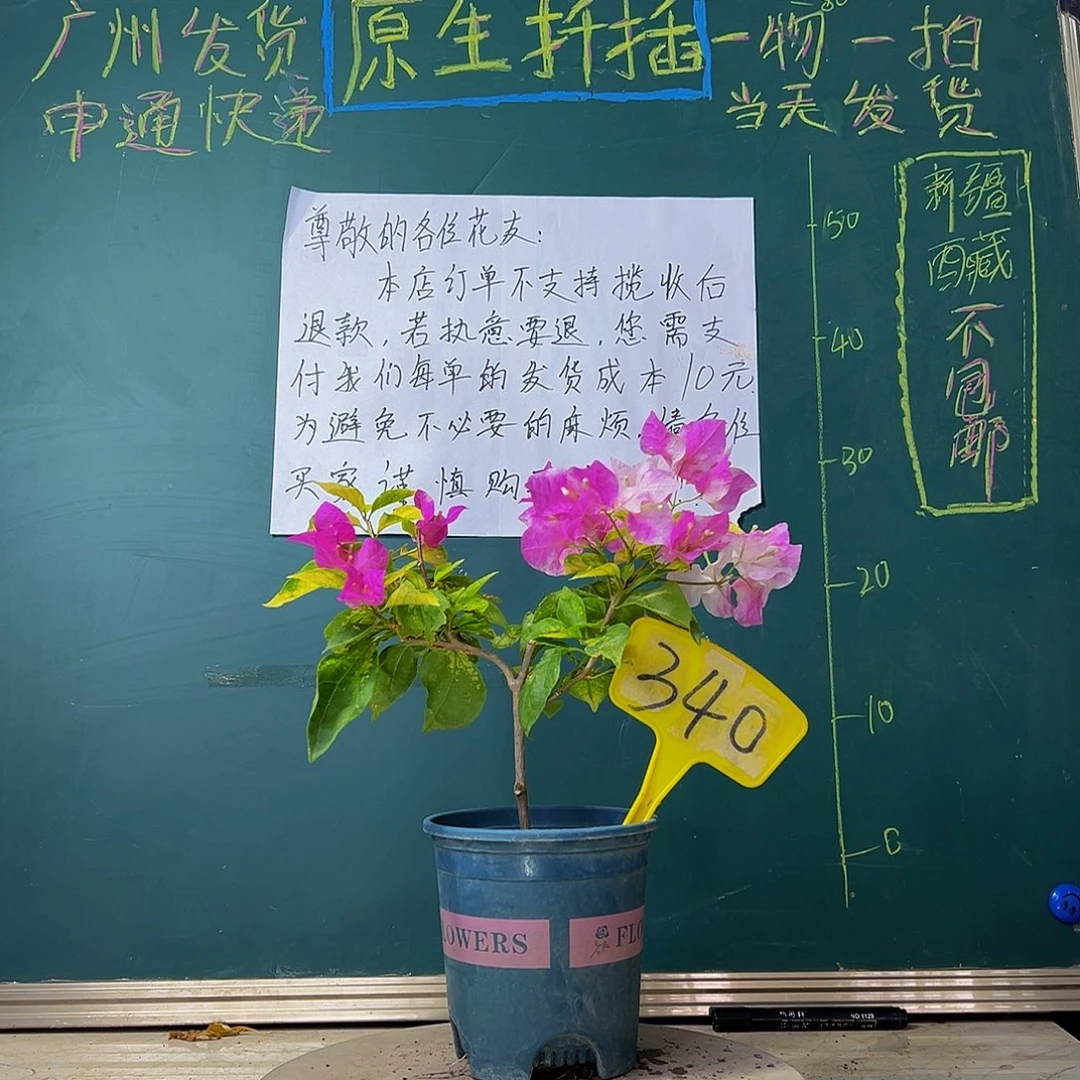 广州发货
原生扦插
一物一拍
申通快递
当天发货
尊敬的各位花友:
本店订单不支持揽收后
退款,若执意要退,您需支
付我们每单的发货成本10元.
为避免不必要的麻烦,请各位
买家谨慎购
新疆
西藏
不包邮
50
40
30
20
10
0
340
LOWERS
FLO
NO.1129